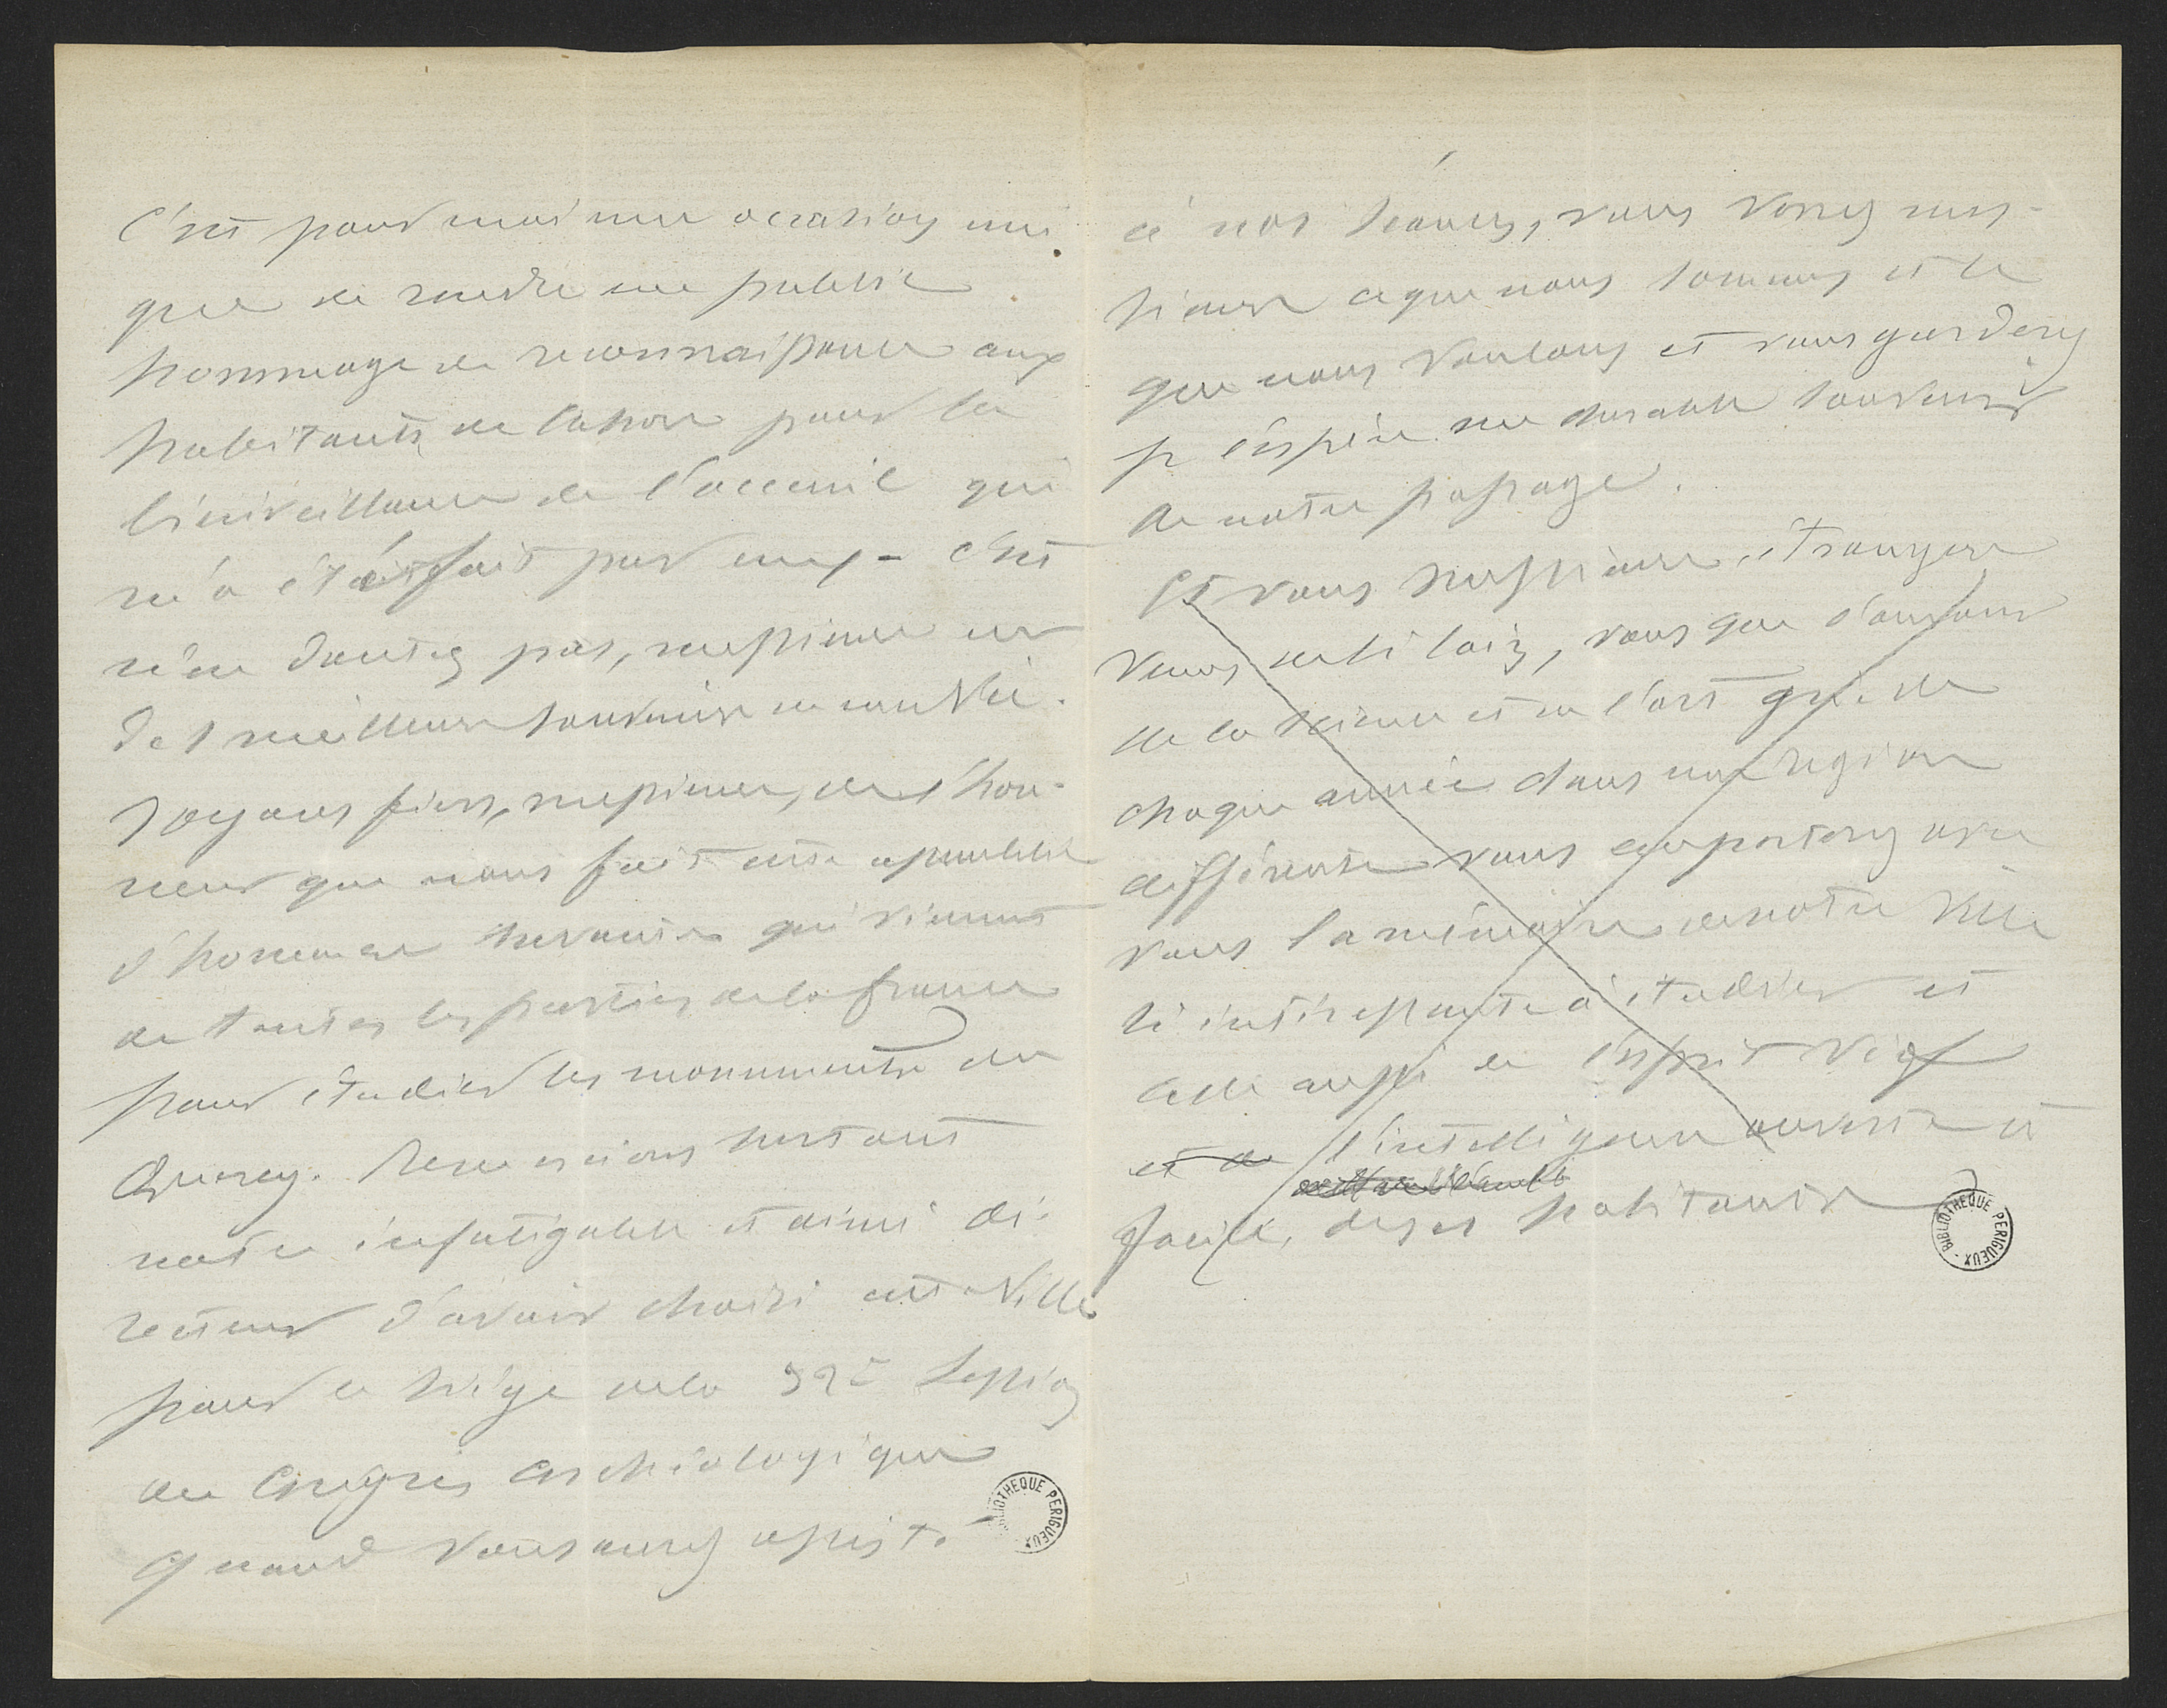 C'est pour moi une occasion uni
que de rendre un public
hommage de reconnaissance aux
habitants de Cahors pour la
bienveillance de l'accueil qui
m'a été fait par eux – C'est
n'en doutez pas, messieurs un
des meilleurs souvenirs de ma vie.
Soyons fiers, messieurs, de l'hon-
neur que nous fait cette assemblée
d'hommes savants qui viennent
de toutes les parties de la france
pour étudier les monuments du
Quercy. Remercions surtout
notre infatigable et aimé di-
recteur d'avoir choisi cette Ville
pour le siège de la 32e Session
du Congrès archéologique
Quand vous aurez assisté
à nos séances, vous verrez mes-
sieurs ce que nous sommes et ce
que nous voulons et vous garderez
je l'espère un durable souvenir
de notre passage.
Et vous messieurs étrangers
venus de si loin, vous que l'amour
de la science et de l'art guide
chaque année dans une région
différente vous emporterez avec
vous la mémoire de notre ville
si intéressante à étudier et
celle aussi de l'esprit vif
et de l'intelligence ouverte et
facile, de ses habitants
BIBLIOTHEQUE PERIGUEUX
BIBLIOTHEQUE PERIGUEUX